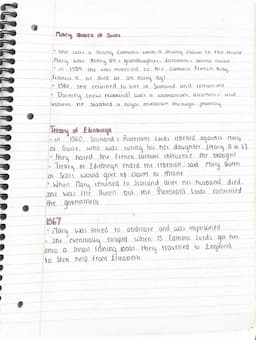 Mary Queen of Scots
- She was a strong Catholic with a strong claim to the throne.
Mary was Henry VII's granddaughter, Elizabeth's second cousin
- in 1558 she was married to the Catholic French King
Francis II. He died at an early age.
- 1561, she returned to live in Scotland and remarried
- Darnley (new husband) was a womaniser, alcoholic and
murders he stabbed a royal musician through jealousy
Treaty of Edinburgh
- in 1560, Scotland's Protestant Lords rebelled against Mary
of Guise, who was ruling for her daughter (Mary Q of S)
- They hated the French Catholic influence she brought
- Treaty of Edinburgh ended the rebellion, said Mary Queen
of Scots would give up claim to throne
- When Mary returned to Scotland after her husband died,
she was the Queen but the Protestant Lords controlled
the government
1567
- Mary was forced to abdicate and was imprisoned
- She eventually escaped when 15 Catholic Lords got her
onto a small fishing boat, they travelled to England
to seek help from Elizabeth